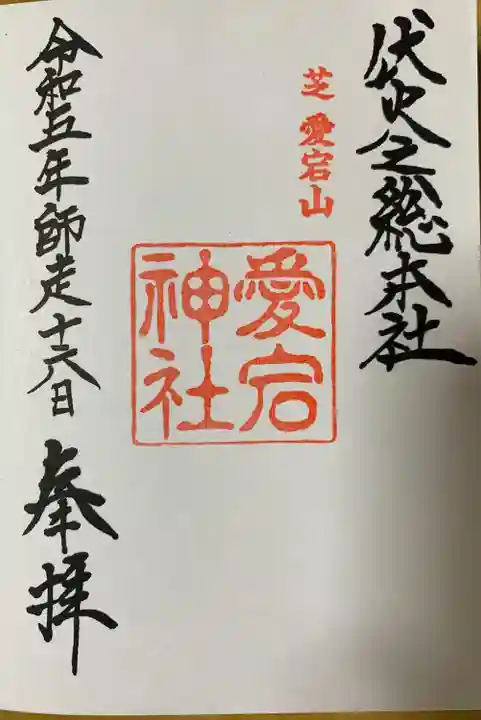 伏火之総本社
芝 愛宕山
愛宕
神社
令和五年師走十六日
奉拝